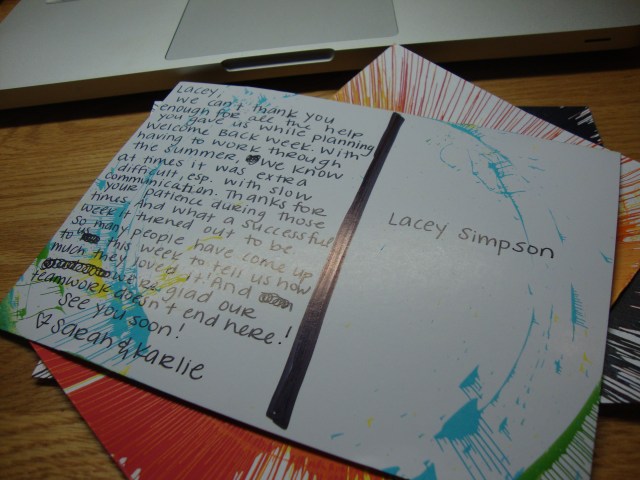 Lacey,
We can't thank you
enough for all the help
you gave us while planning
Welcome Back Week. With
having to work through
the summer, we know
at times it was extra
difficult, esp. with slow
communication. Thanks for
your patience during those
times. And what a successful
week it turned out to be.
So many people have come up
to us this week to tell us how
much they loved it! And
we're glad our
teamwork doesn't end here!
See you soon!
Sarah & Karlie
Lacey Simpson